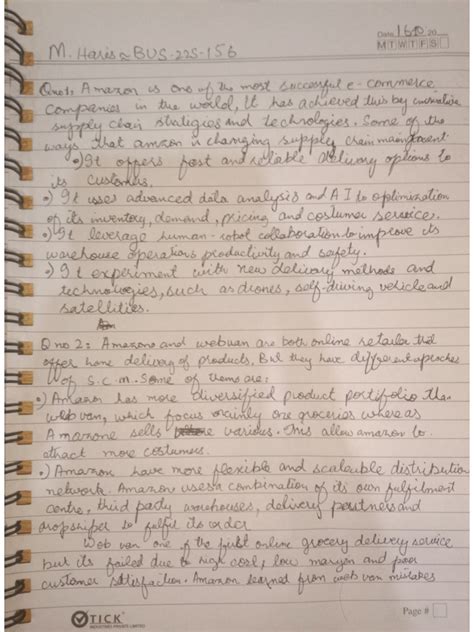 Date 16 20
M T W T F S
M. Haris ~ BUS-22S-156
Qno1: Amazon is one of the most successful e-commerce
companies in the world, It has achieved this by
supply chain strategies and technologies. Some of the
ways that amzon is changing supply chain
•) It offers fast and reliable delivery options to
its customers.
•) It uses advanced data analysis and AI to optimization
of its inventory, demand, pricing and costumer service.
•) It leverage human-robot collaboration to improve its
warehouse operations productivity and safety.
•) It experiment with new delivery methods and
technologies, such as drones, self-driving vehicle and
satellities.
Q no 2: Amazone and webvan are both online retailer
offer home delivery of products, But they have different
of S.C.M. Some of them are:
•) Amazon has more diversified product portifolio
web van, which focus mainly one groceries where as
Amazone sells various. This allow amazon to
attract more costumers.
•) Amazon have more flexible and scaleable distribution
network. Amazon uses a combination of its own fulfilment
centre, third party warehouses, delivery partners and
dropshiper to fulfil its order
Web van one of the first online grocery delivery service
but its failed due to high cost, low margen and poor
customer satisfaction. Amazon learned from web van mistakes
TICK
INDUSTRIES PRIVATE LIMITED
Page #